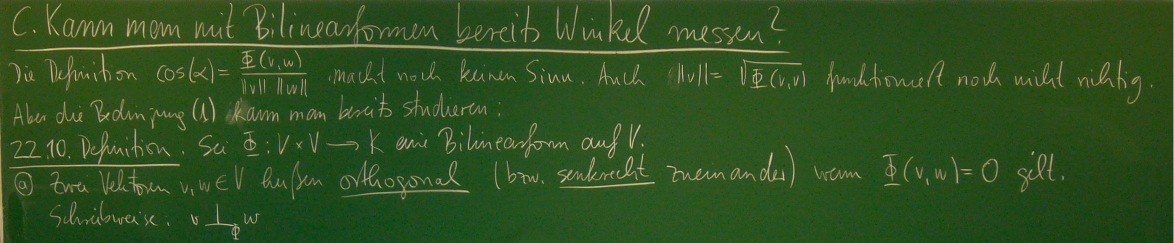 C. Kann man mit Bilinearformen bereits Winkel messen?
Die Definition cos(α) = Φ(v,w) / ‖v‖ ‖w‖ macht noch keinen Sinn. Auch ‖v‖ = √Φ(v,v) funktioniert noch nicht richtig.
Aber die Bedingung (⊥) kann man bereits studieren:
22.10. Definition. Sei Φ: V × V → K eine Bilinearform auf V.
ⓐ Zwei Vektoren v, w ∈ V heißen orthogonal (bzw. senkrecht zueinander) wenn Φ(v, w) = 0 gilt.
Schreibweise: v ⊥_Φ w